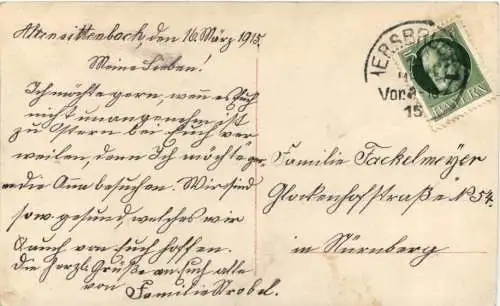 Altensittenbach, den 16. März 1915.
Meine Lieben!
Ich möchte gern, wenn es Euch
nicht unangenehm ist
zu Ostern bei Euch ver
weilen, denn Ich möchte ge-
die Anna besuchen. Wir sind
so w. gesund, welches wir
auch von Euch hoffen.
Die herzl. Grüße an Euch alle
von Familie Strobel.
HERSBR
Vor. 8-
15
BAYERN
Familie Fackelmeyer
Glockenhofstraße No 54.
in Nürnberg